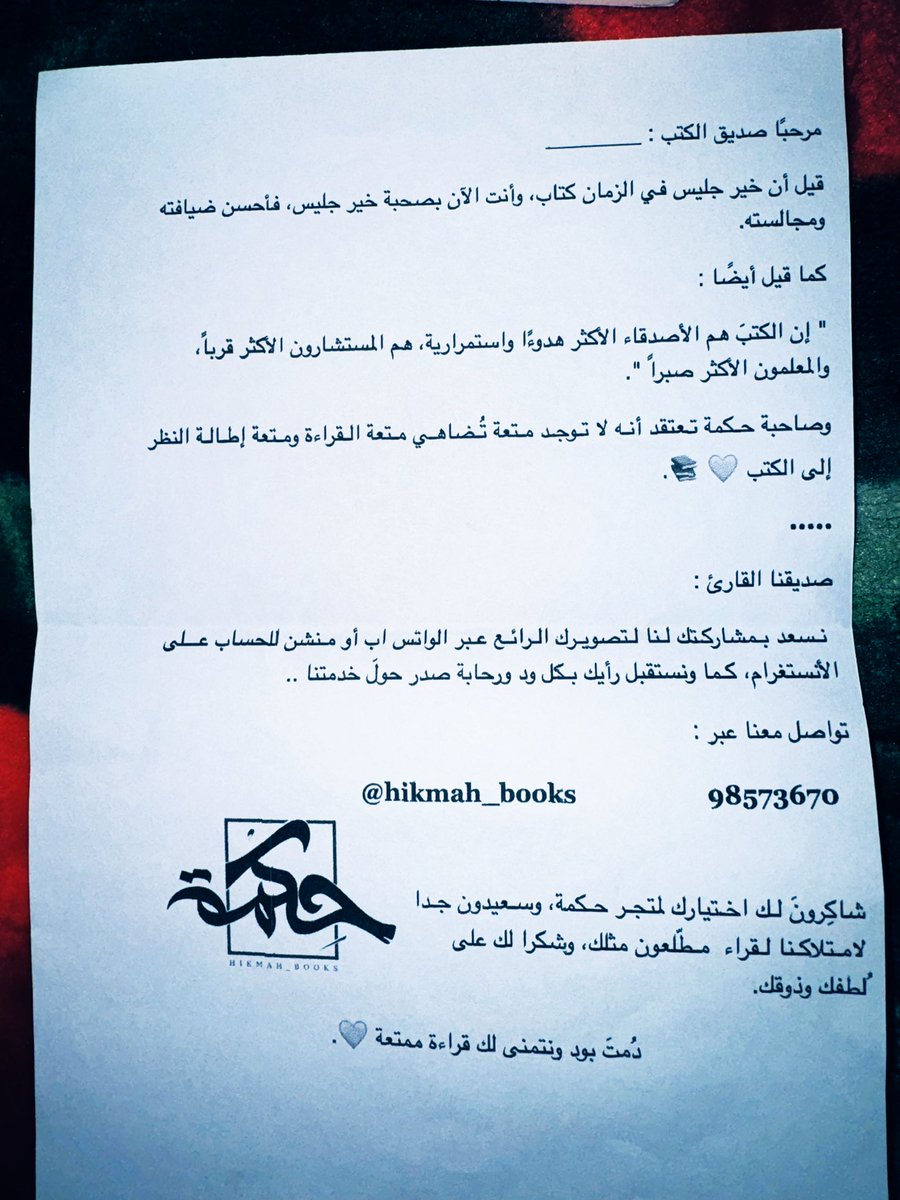 مرحبًا صديق الكتب : ________
قيل أن خير جليس في الزمان كتاب، وأنت الآن بصحبة خير جليس، فأحسن ضيافته
ومجالسته.
كما قيل أيضًا :
" إن الكتبَ هم الأصدقاء الأكثر هدوءًا واستمرارية، هم المستشارون الأكثر قرباً،
والمعلمون الأكثر صبراً ".
وصاحبة حكمة تعتقد أنه لا توجد متعة تُضاهي متعة القراءة ومتعة إطالة النظر
إلى الكتب 🤍 📚.
.....
صديقنا القارئ :
نسعد بمشاركتك لنا لتصويرك الرائع عبر الواتس اب أو منشن للحساب على
الأنستغرام، كما ونستقبل رأيك بكل ود ورحابة صدر حولَ خدمتنا ..
تواصل معنا عبر :
98573670 @hikmah_books
حكمة
HIKMAH_BOOKS
شاكِرونَ لك اختيارك لمتجر حكمة، وسعيدون جدا
لامتلاكنا لقراء مطّلعون مثلك، وشكرا لك على
لُطفك وذوقك.
دُمتَ بود ونتمنى لك قراءة ممتعة 🤍.